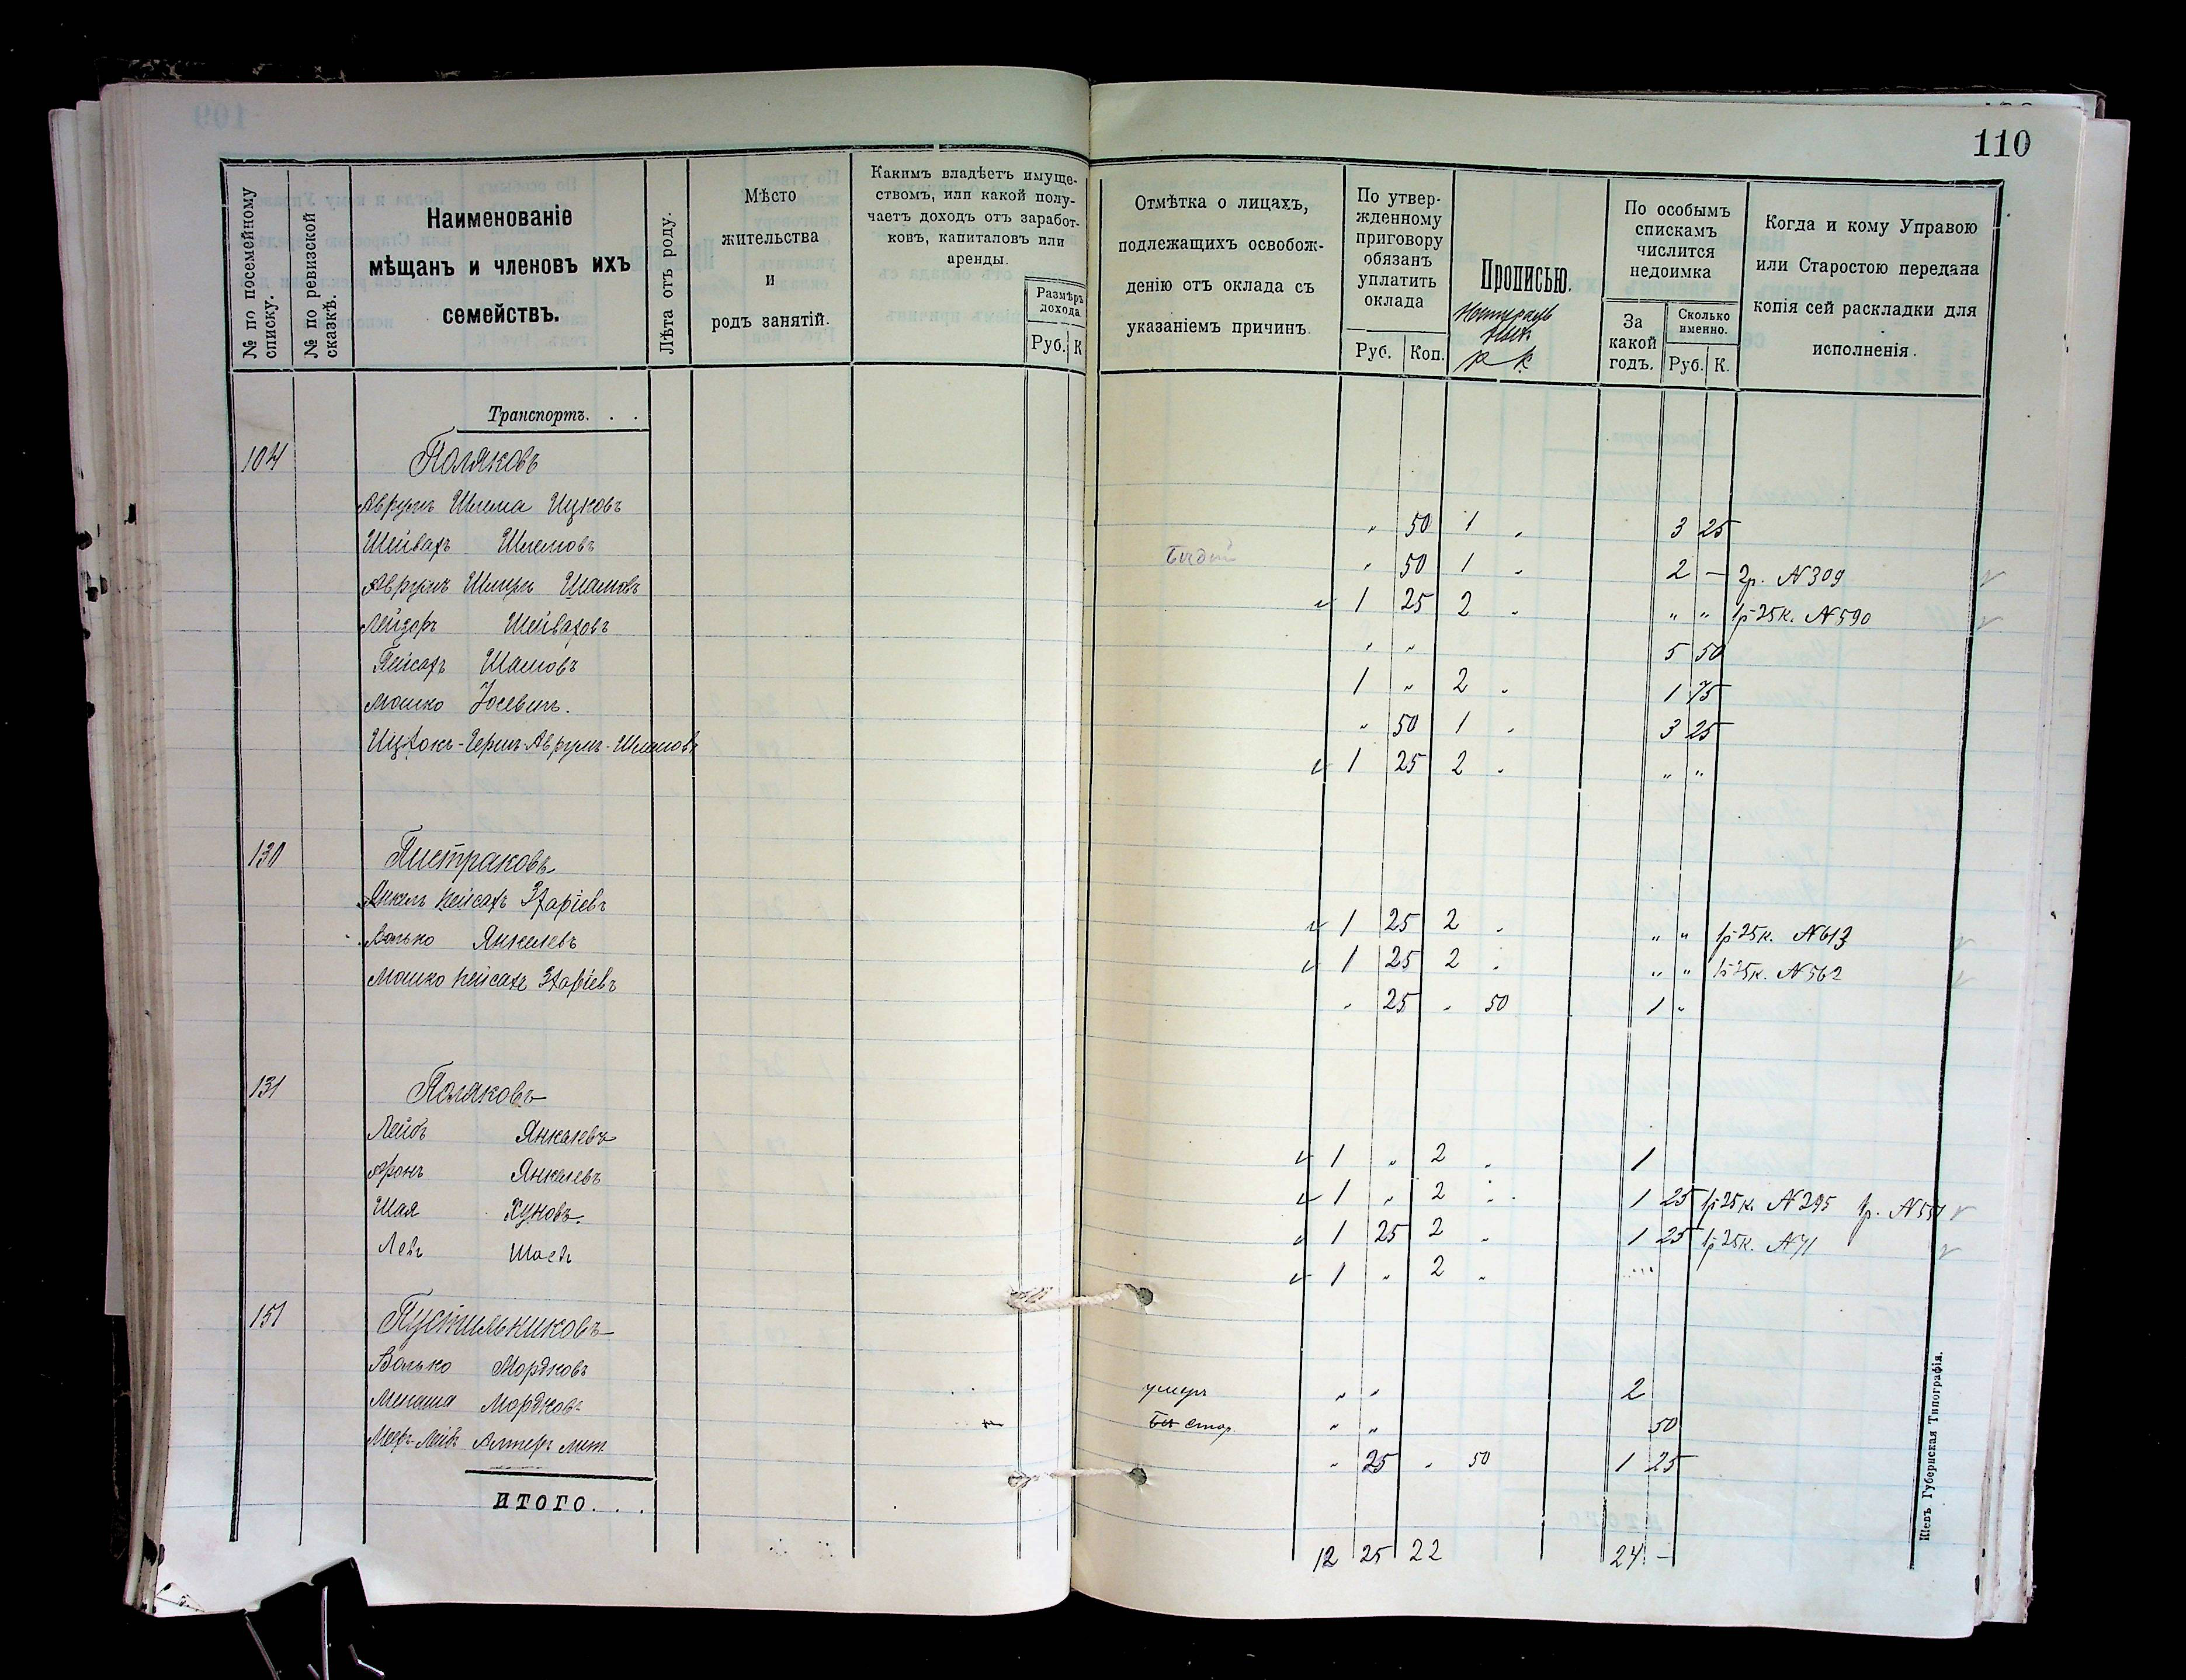 110
№ по посемейному списку.
№ по ревизской сказкѣ.
Наименованіе
мѣщанъ и членовъ ихъ
семействъ.
Лѣта отъ роду.
Мѣсто
жительства
и
родъ занятій.
Какимъ владѣетъ имуще-
ствомъ, или какой полу-
чаетъ доходъ отъ заработ-
ковъ, капиталовъ или
аренды.
Размѣръ
дохода
Руб. К
Отмѣтка о лицахъ,
подлежащихъ освобож-
денію отъ оклада съ
указаніемъ причинъ.
По утвер-
жденному
приговору
обязанъ
уплатить
оклада
Руб. Коп.
Прописью.
р к
По особымъ
спискамъ
числится
недоимка
За
какой
годъ.
Сколько
именно.
Руб. К.
Когда и кому Управою
или Старостою передана
копія сей раскладки для
исполненія.
Транспортъ. . .
104 Поляковъ
Аврумъ Шлема Ицковъ " 50 1 " 3 25
Шейвахъ Шлемовъ " 50 1 " 2 — 2р. N 309
Аврумъ Шамовъ 1 25 2 " " " 1р 25к. N 590
Лейзоръ Шейваховъ " " 5 50
Пейсахъ Шамовъ 1 " 2 " 1 75
Мошко Іосевичъ. " 50 1 " 3 25
Ицхокъ-Герш-Аврумъ-Шлемовъ 1 25 2 " " "
130 Пистраковъ
Янкель Пейсахъ Зхаріевъ 1 25 2 " " " 1р 25к. N 613
Волько Янкелевъ 1 25 2 " " " 1р 25к. N 562
Мошко Пейсахъ Зхаріевъ " 25 " 50 1 "
131 Поляковъ
Лейбъ Янкелевъ 1 " 2 " 1
Аронъ Янкелевъ 1 " 2 " 1 25 1р 25к. N 295 1р. N 551
Шая Хуновъ. 1 25 2 " 1 25 1р 25к. N 71
Левъ Шаевъ 1 " 2 "
151 Пустильниковъ
Волько Мордковъ умеръ " " 2
Менаша Мордковъ стар. " " 50
Мееръ-Лейбъ Алтеръ " 25 " 50 1 25
ИТОГО. . . 12 25 22 24 —
Кіевъ Губернская Типографія.